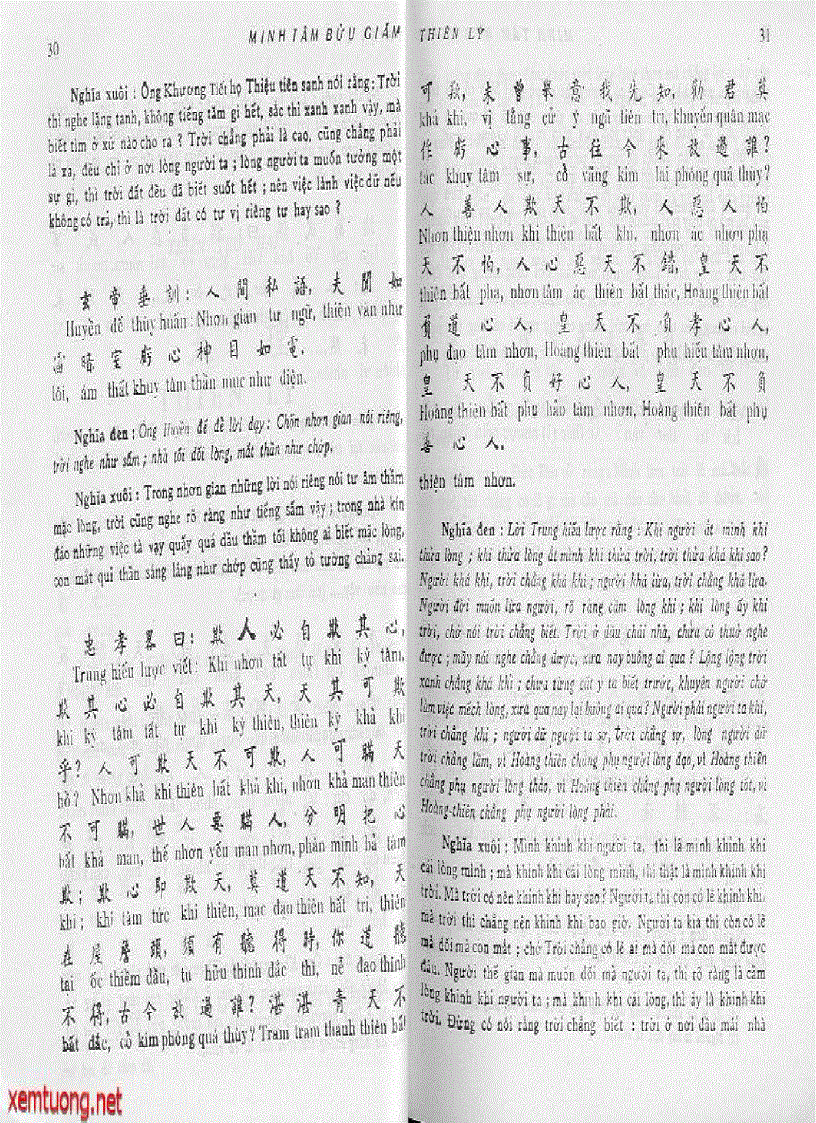 30
MINH TÂM BỬU GIÁM
Nghĩa xuôi : Ông Khương Tiết họ Thiệu tiên sanh nói rằng : Trời
thì nghe lặng tanh, không tiếng tăm gì hết, sắc thì xanh xanh vậy, mà
biết tìm ở xứ nào cho ra ? Trời chẳng phải là cao, cũng chẳng phải
là xa, đều chỉ ở nơi lòng người ta ; lòng người ta muốn tưởng một
sự gì, thì trời đất đều đã biết suốt hết ; nên việc lành việc dữ nếu
không có trả, thì là trời đất có tư vị riêng tư hay sao ?
玄 帝 垂 訓 : 人 間 私 語, 天 聞 如
Huyền đế thùy huấn : Nhơn gian tư ngữ, thiên văn như
雷 暗 室 虧 心 神 目 如 電.
lôi, ám thất khuy tâm thần mục như điện.
Nghĩa đen : Ông Huyền đế để lời dạy : Chốn nhơn gian nói riêng,
trời nghe như sấm ; nhà tối dối lòng, mắt thần như chớp.
Nghĩa xuôi : Trong nhơn gian những lời nói riêng nói tư âm thầm
mặc lòng, trời cũng nghe rõ ràng như tiếng sấm vậy ; trong nhà kín
đáo những việc tà vạy quấy quá dầu thầm tối không ai biết mặc lòng,
con mắt quỉ thần sáng láng như chớp cũng thấy tỏ tường chẳng sai.
忠 孝 畧 曰 : 欺 人 必 自 欺 其 心,
Trung hiếu lược viết : Khi nhơn tất tự khi kỳ tâm,
欺 其 心 必 自 欺 其 天, 天 其 可 欺
khi kỳ tâm tất tự khi kỳ thiên, thiên kỳ khả khi
乎? 人 可 欺 天 不 可 欺, 人 可 瞞 天
hồ ? Nhơn khả khi thiên bất khả khi, nhơn khả man thiên
不 可 瞞, 世 人 要 瞞 人, 分 明 把 心
bất khả man, thế nhơn yếu man nhơn, phân minh bả tâm
欺 ; 欺 心 即 欺 天, 莫 道 天 不 知, 天
khi ; khi tâm tức khi thiên, mạc đạo thiên bất tri, thiên
在 屋 簷 頭, 須 有 聽 得 時, 你 道 聽
tại ốc thiềm đầu, tu hữu thính đắc thì, nễ đạo thính
不 得, 古 今 放 過 誰? 湛 湛 青 天 不
bất đắc, cổ kim phóng quá thùy ? Trạm trạm thanh thiên bất
THIÊN LÝ
31
可 欺, 未 曾 舉 意 我 先 知, 勸 君 莫
khả khi, vị tằng cử ý ngã tiên tri, khuyến quân mạc
作 虧 心 事, 古 往 今 來 放 過 誰?
tác khuy tâm sự, cổ vãng kim lai phóng quá thùy ?
人 善 人 欺 天 不 欺, 人 惡 人 怕
Nhơn thiện nhơn khi thiên bất khi, nhơn ác nhơn phạ
天 不 怕, 人 心 惡 天 不 錯, 皇 天 不
thiên bất phạ, nhơn tâm ác thiên bất thác, Hoàng thiên bất
負 道 心 人, 皇 天 不 負 孝 心 人,
phụ đạo tâm nhơn, Hoàng thiên bất phụ hiếu tâm nhơn,
皇 天 不 負 好 心 人, 皇 天 不 負
Hoàng thiên bất phụ hảo tâm nhơn, Hoàng thiên bất phụ
善 心 人.
thiện tâm nhơn.
Nghĩa đen : Lời Trung hiếu lược rằng : Khi người ắt mình khi
thửa lòng ; khi thửa lòng ắt mình khi thửa trời, trời thửa khá khi sao ?
Người khá khi, trời chẳng khá khi ; người khá lừa, trời chẳng khá lừa.
Người đời muốn lừa người, rõ ràng cầm lòng khi ; khi lòng ấy khi
trời, chớ nói trời chẳng biết. Trời ở đầu chái nhà, chửa có thuở nghe
được ; mầy nói nghe chẳng được, xưa nay buông ai qua ? Lộng lộng trời
xanh chẳng khá khi ; chưa từng cất ý ta biết trước, khuyên người chớ
làm việc mếch lòng, xưa qua nay lại buông ai qua ? Người phải người ta khi,
trời chẳng khi ; người dữ người ta sợ, trời chẳng sợ, lòng người dữ
trời chẳng lầm, vì Hoàng thiên chẳng phụ người lòng đạo, vì Hoàng thiên
chẳng phụ người lòng thảo, vì Hoàng thiên chẳng phụ người lòng tốt, vì
Hoàng-thiên chẳng phụ người lòng phải.
Nghĩa xuôi : Mình khinh khi người ta, thì là mình khinh khi
cái lòng mình ; mà khinh khi cái lòng mình, thì thật là mình khinh khi
trời. Mà trời có nên khinh khi hay sao ? Người ta, thì còn có lẽ khinh khi,
mà trời thì chẳng nên khinh khi bao giờ. Người ta kia thì còn có lẽ
mà dối mà con mắt ; chớ Trời chẳng có lẽ ai mà dối mà con mắt được
đâu. Người thế gian mà muốn dối mà người ta, thì rõ ràng là cầm
lòng khinh khi người ta ; mà khinh khi cái lòng, thì ấy là khinh khi
trời. Đừng có nói rằng trời chẳng biết : trời ở nơi đầu mái nhà
xemtuong.net